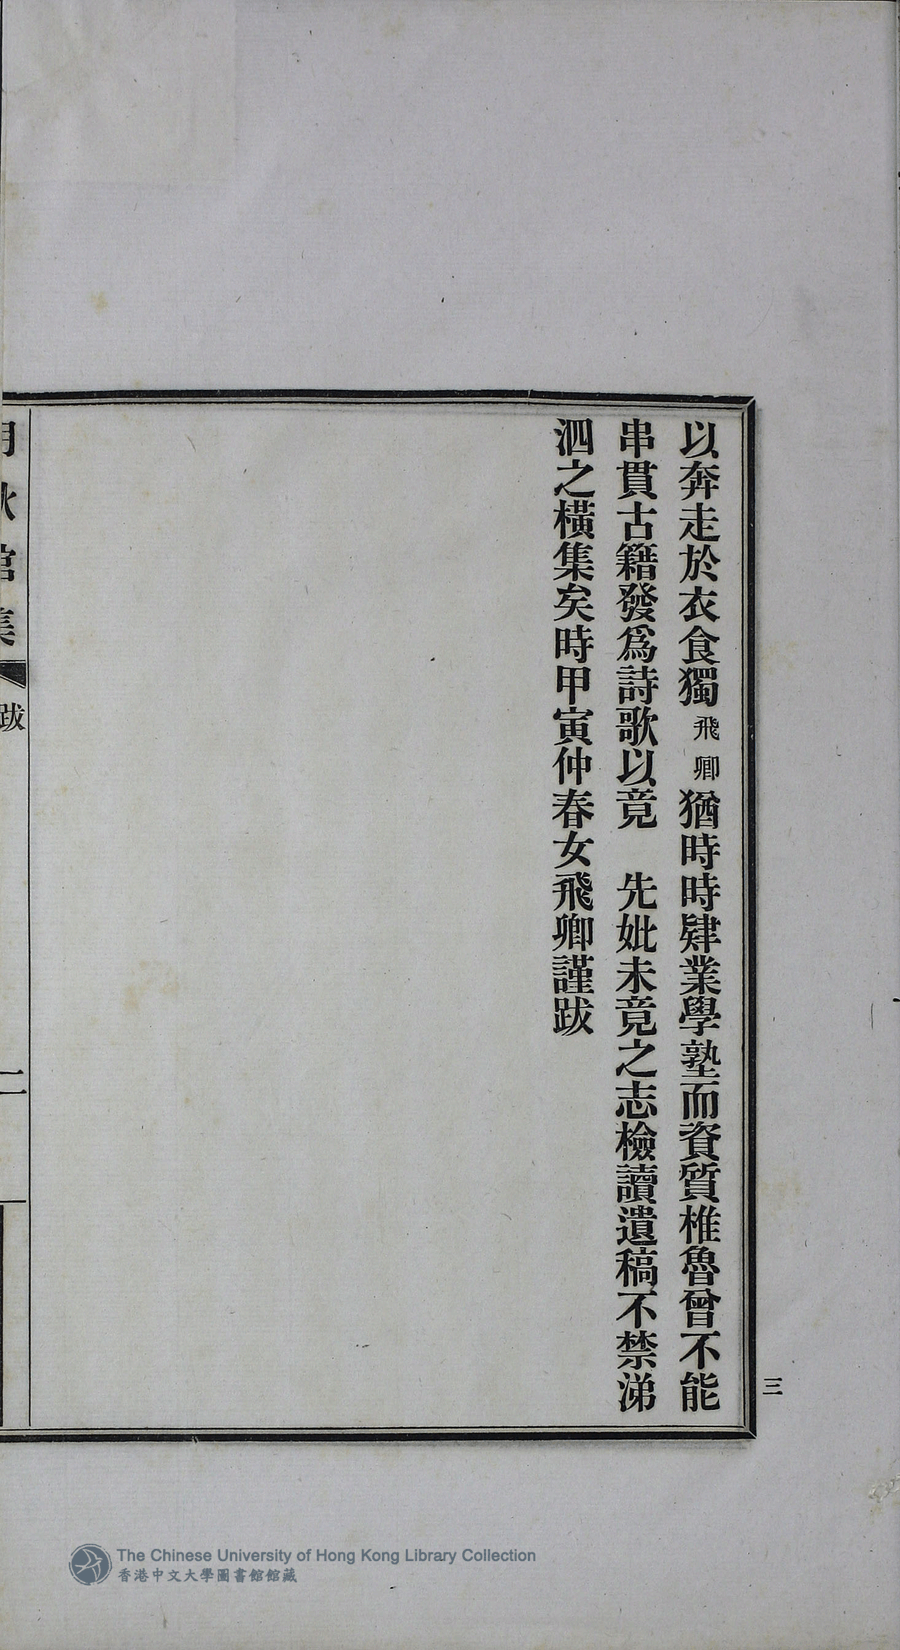 以奔走於衣食獨飛卿猶時時肄業學塾而資質椎魯曾不能
串貫古籍發爲詩歌以竟　先妣未竟之志檢讀遺稿不禁涕
泗之橫集矣時甲寅仲春女飛卿謹跋
跋
二
三
The Chinese University of Hong Kong Library Collection
香港中文大學圖書館館藏